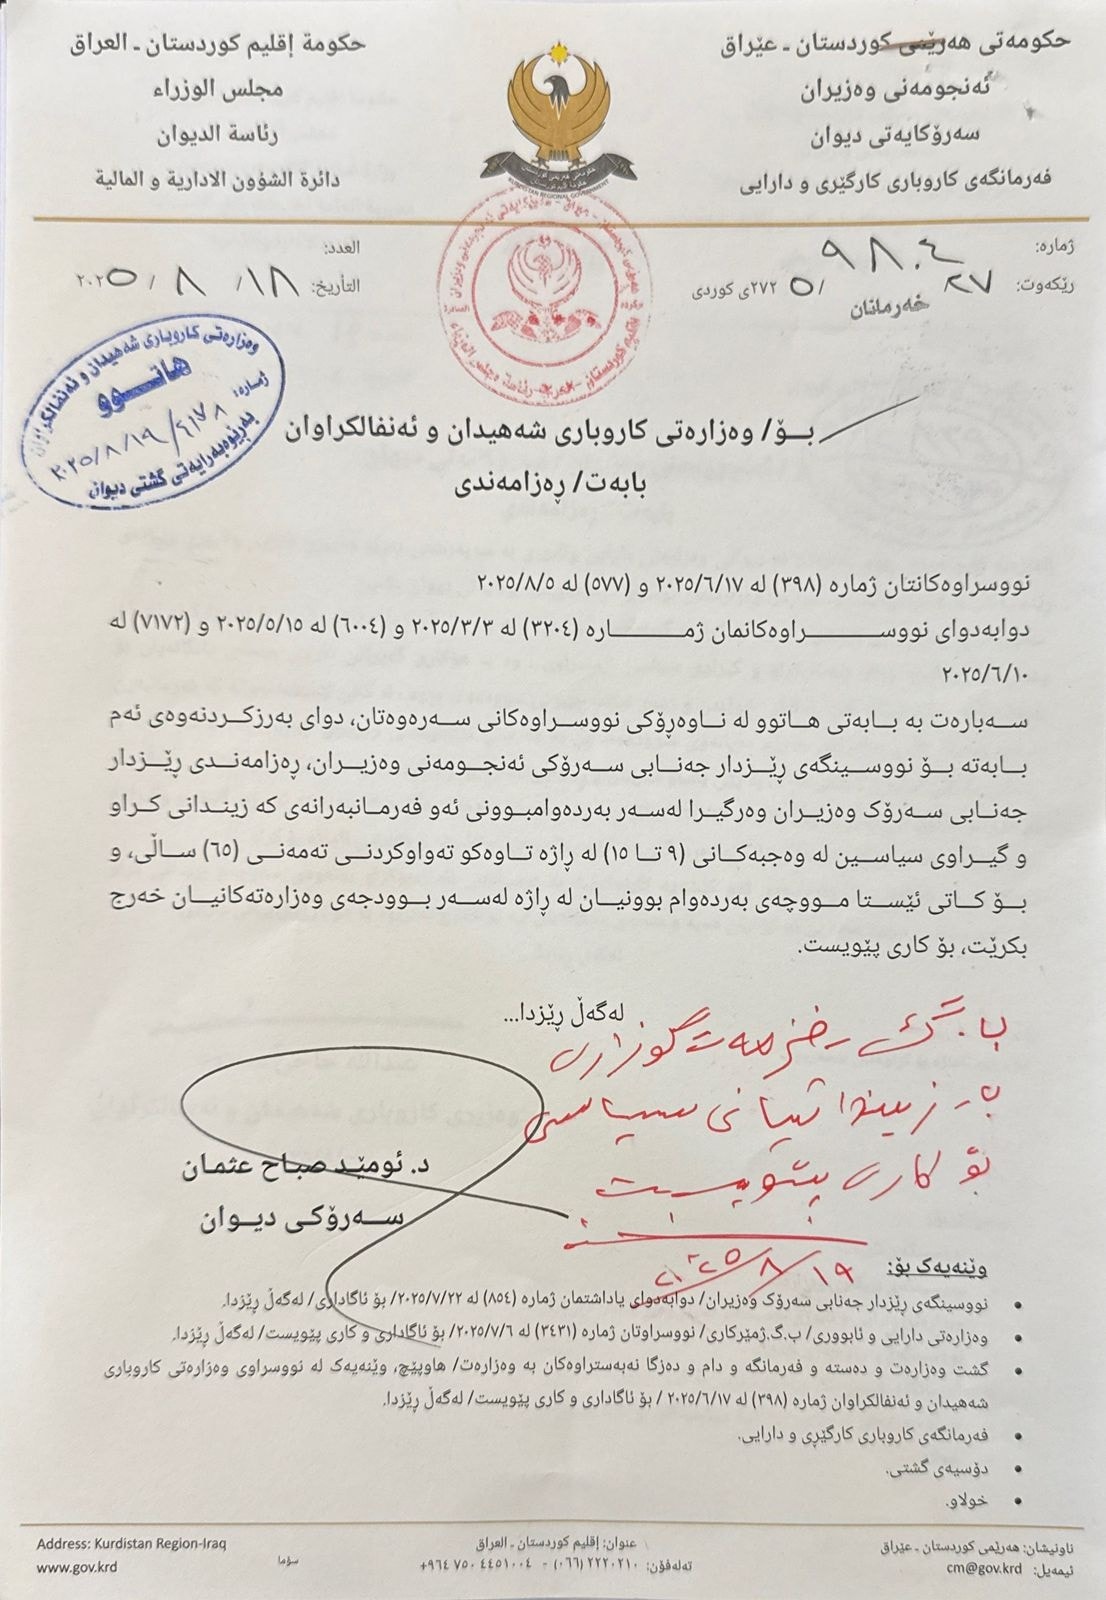 حکومەتی هەرێمی کوردستان ـ عێراق
ئەنجومەنی وەزیران
سەرۆکایەتی دیوان
فەرمانگەی کاروباری کارگێڕی و دارایی
حكومة إقليم كوردستان ـ العراق
مجلس الوزراء
رئاسة الديوان
دائرة الشؤون الادارية و المالية
KURDISTAN REGIONAL GOVERNMENT
ژمارە: ٩٨٠٤
ڕێکەوت: ٢٧ خەرمانان /٢٧٢٥ی کوردی
العدد:
التأريخ: ١٨/ ٨ / ٢٠٢٥
وەزارەتی کاروباری شەهیدان و ئەنفالکراوان
هاتوو
ژمارە: ٤١٧٨
٢٠٢٥/٨/١٩
بەڕێوەبەرایەتی گشتی دیوان
بـۆ/ وەزارەتی کاروباری شەهیدان و ئەنفالکراوان
بابەت/ ڕەزامەندی
نووسراوەکانتان ژمارە (٣٩٨) لە ٢٠٢٥/٦/١٧ و (٥٧٧) لە ٢٠٢٥/٨/٥
دوابەدوای نووسراوەکانمان ژمارە (٣٢٠٤) لە ٢٠٢٥/٣/٣ و (٦٠٠٤) لە ٢٠٢٥/٥/١٥ و (٧١٧٢) لە
٢٠٢٥/٦/١٠
سەبارەت بە بابەتی هاتوو لە ناوەڕۆکی نووسراوەکانی سەرەوەتان، دوای بەرزکردنەوەی ئەم
بابەتە بۆ نووسینگەی ڕێزدار جەنابی سەرۆکی ئەنجومەنی وەزیران، ڕەزامەندی ڕێزدار
جەنابی سەرۆک وەزیران وەرگیرا لەسەر بەردەوامبوونی ئەو فەرمانبەرانەی کە زیندانی کراو
و گیراوی سیاسین لە وەجبەکانی (٩ تا ١٥) لە ڕاژە تاوەکو تەواوکردنی تەمەنی (٦٥) ساڵی، و
بۆ کاتی ئێستا مووچەی بەردەوام بوونیان لە ڕاژە لەسەر بوودجەی وەزارەتەکانیان خەرج
بکرێت، بۆ کاری پێویست.
لەگەڵ ڕێزدا...
ب.گ. خزمەتگوزاری
بە زیندانیانی سیاسی
بۆ کاری پێویست
٢٠٢٥/٨/١٩
د. ئومێد صباح عثمان
سەرۆکی دیوان
وێنەیەک بۆ:
• نووسینگەی ڕێزدار جەنابی سەرۆک وەزیران/ دوابەدوای یاداشتمان ژمارە (٨٥٤) لە ٢٠٢٥/٧/٢٢/ بۆ ئاگاداری/ لەگەڵ ڕێزدا.
• وەزارەتی دارایی و ئابووری/ ب.گ.ژمێرکاری/ نووسراوتان ژمارە (٣٤٣١) لە ٢٠٢٥/٧/٦/ بۆ ئاگاداری و کاری پێویست/ لەگەڵ ڕێزدا.
• گشت وەزارەت و دەستە و فەرمانگە و دام و دەزگا نەبەستراوەکان بە وەزارەت/ هاوپێچ، وێنەیەک لە نووسراوی وەزارەتی کاروباری
شەهیدان و ئەنفالکراوان ژمارە (٣٩٨) لە ٢٠٢٥/٦/١٧ / بۆ ئاگاداری و کاری پێویست/ لەگەڵ ڕێزدا.
• فەرمانگەی کاروباری کارگێڕی و دارایی.
• دۆسیەی گشتی.
• خولاو.
ناونیشان: هەرێمی کوردستان ـ عێراق
ئیمەیل: cm@gov.krd
عنوان: إقليم كوردستان ـ العراق
تەلەفۆن: ٢٢٢٠٢١٠ (٠٦٦) - ٤٤٥١٠٠٤ ٧٥٠ ٩٦٤+
سۆما
Address: Kurdistan Region-Iraq
www.gov.krd